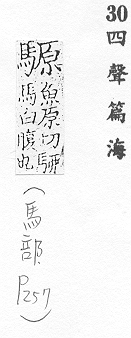 30四聲篇海
騵魚原切駵
馬白腹也
(馬部. P257)